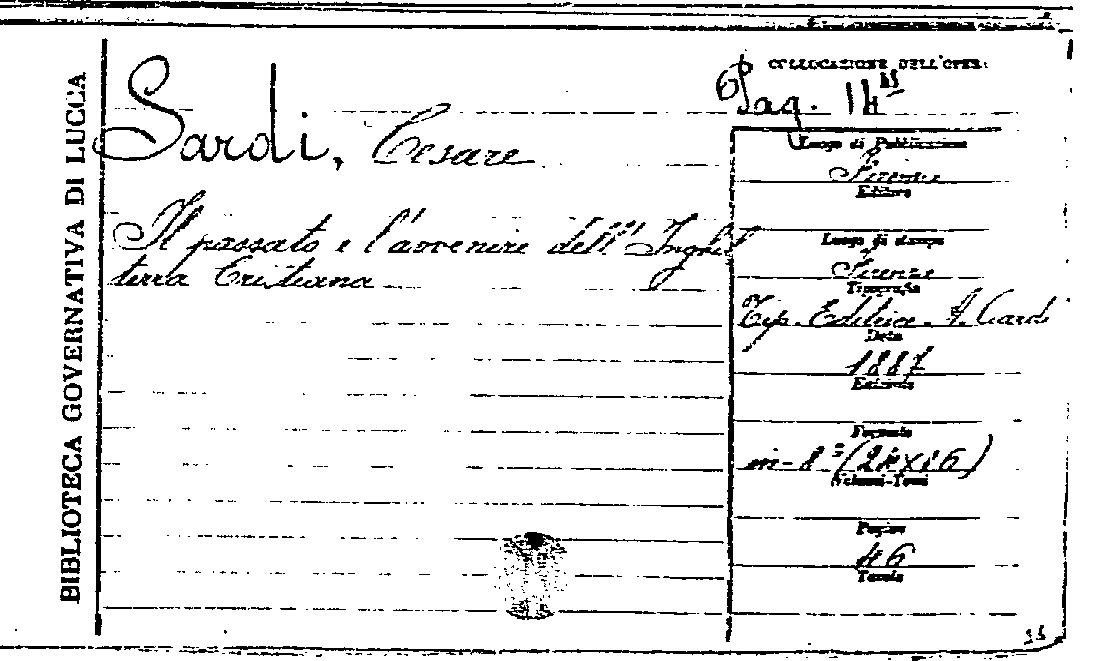 BIBLIOTECA GOVERNATIVA DI LUCCA
Sardi, Cesare
Il passato e l'avvenire dell'Inghil
terra Cristiana
COLLOCAZIONE DELL'OPERA
Pag. 14
Luogo di Pubblicazione
Firenze
Editore
Luogo di stampa
Firenze
Tipografia
Tip. Editrice A. Ciardi
Data
1887
Edizione
Formato
in-8° (24x16)
Volumi-Tomi
Pagine
46
Tavole